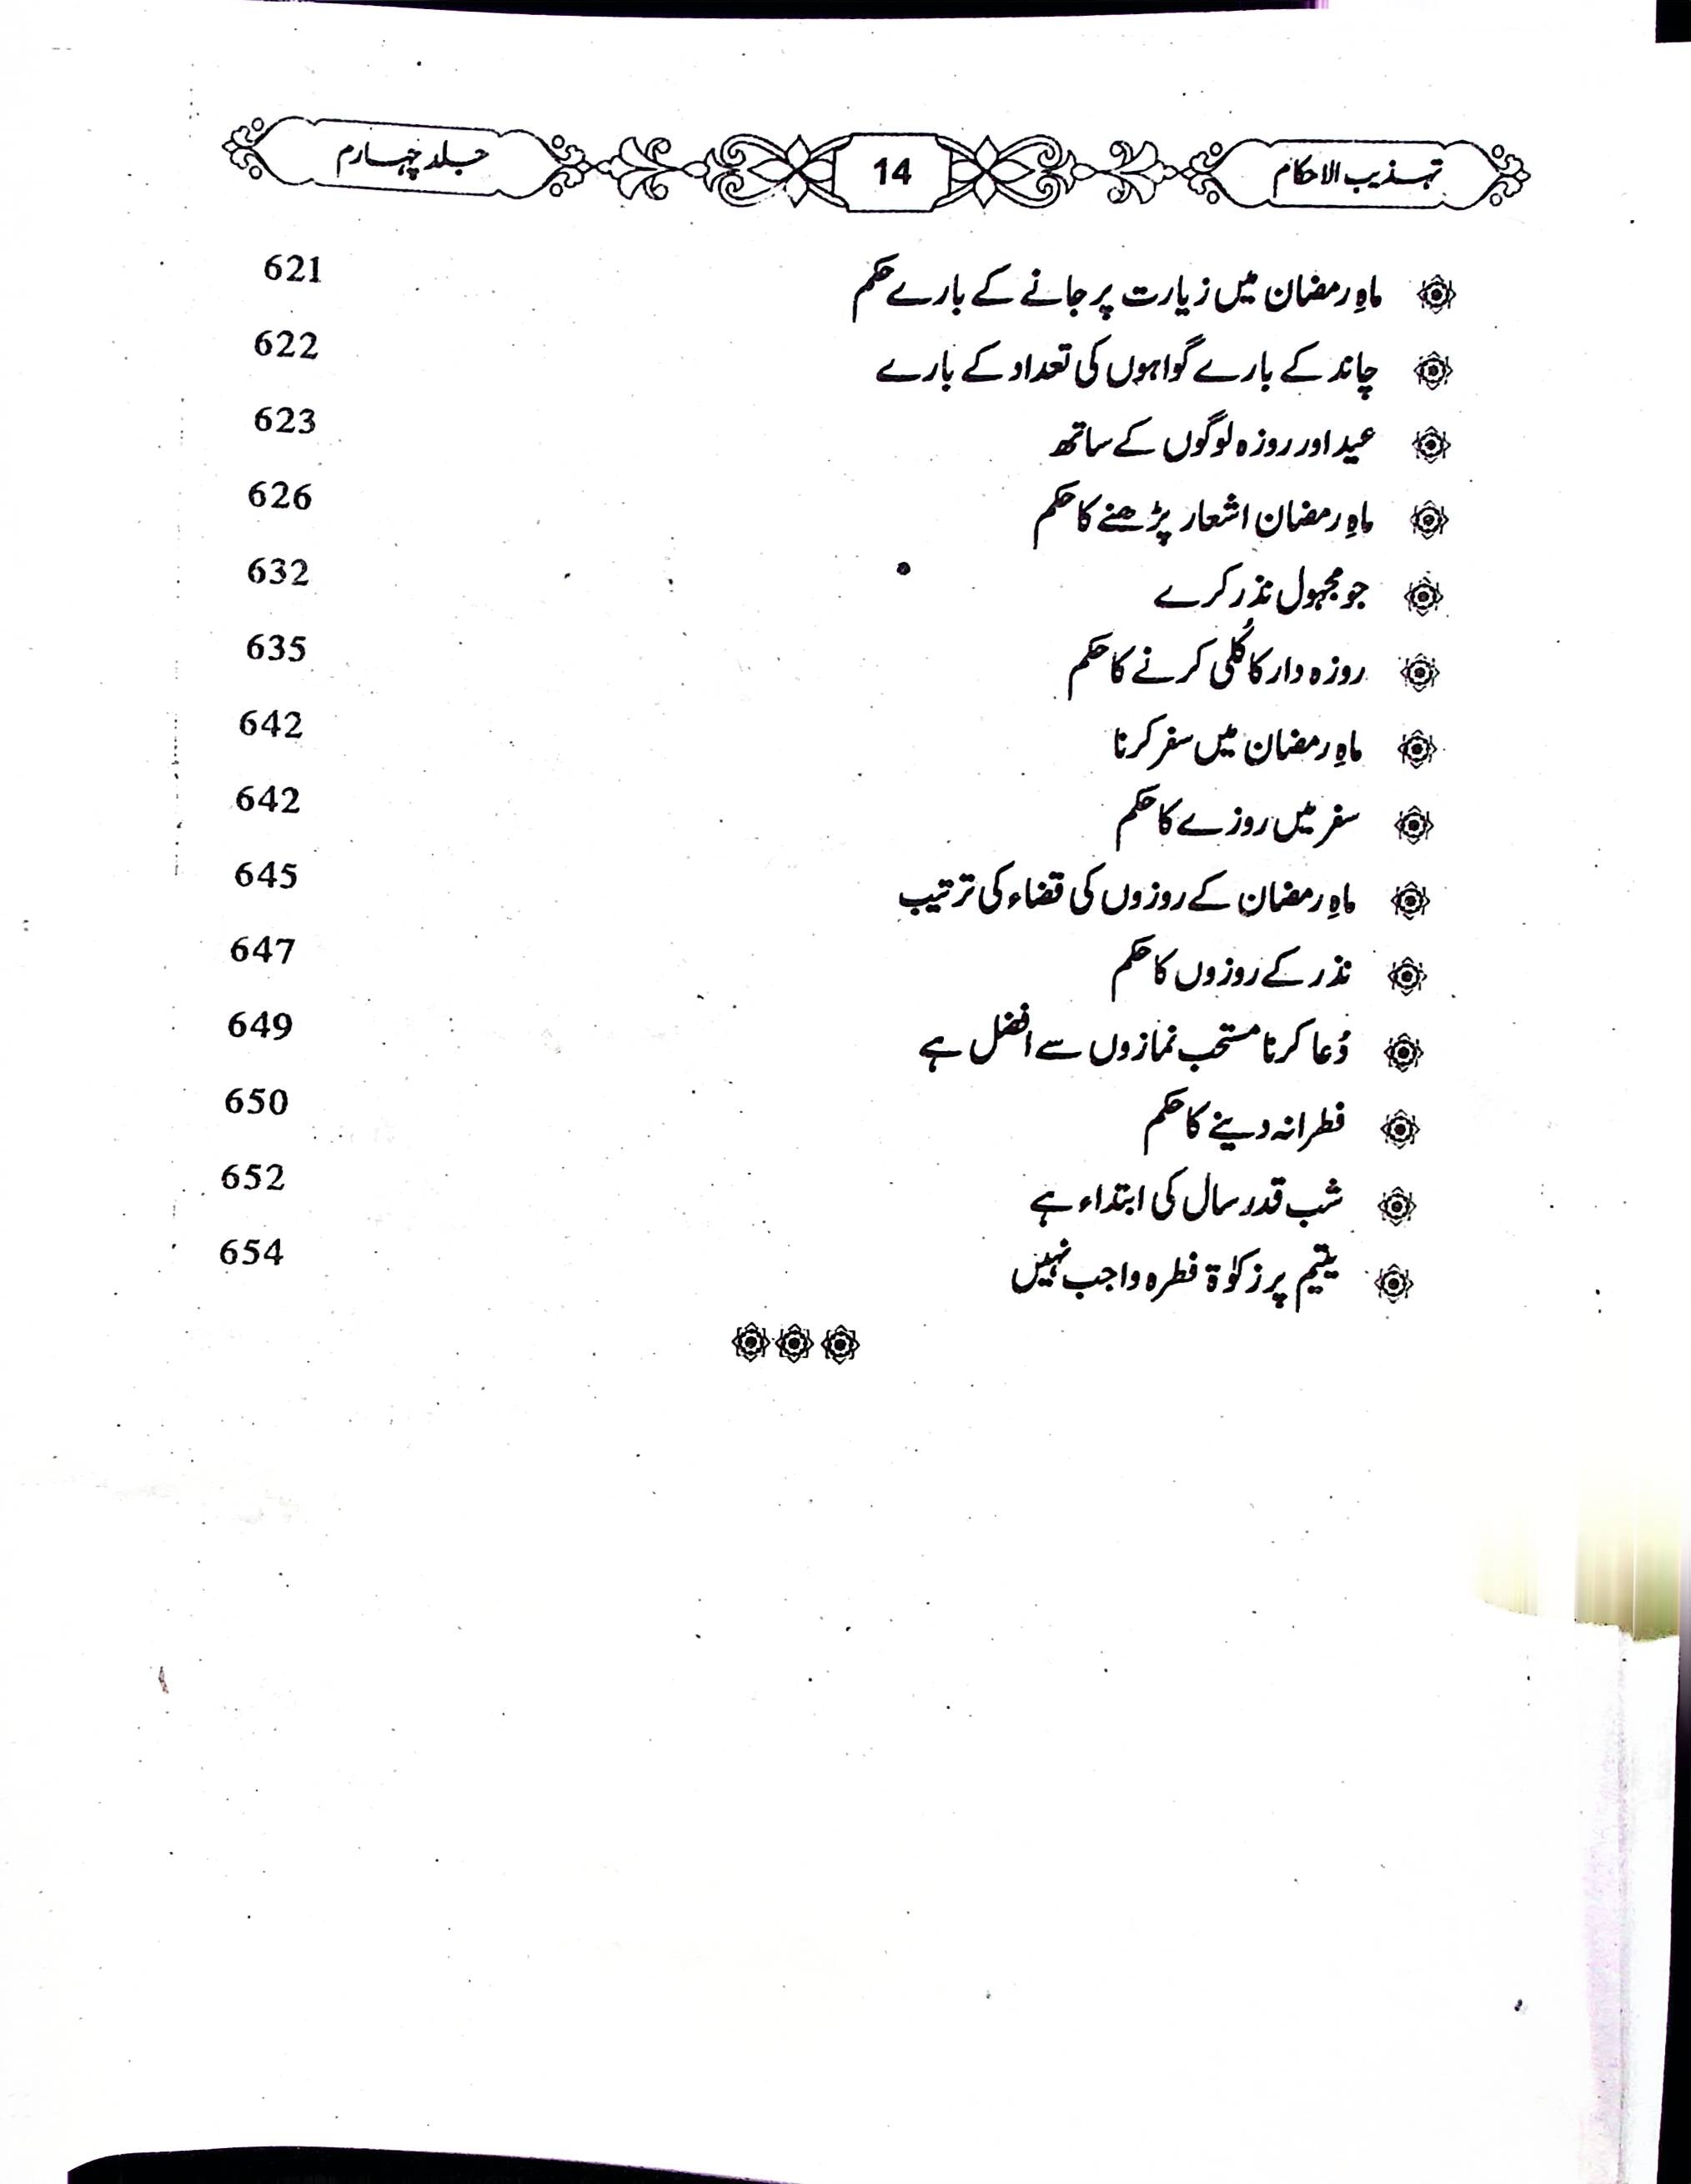 تہذیب الاحکام 14 جلد چہارم
ماہِ رمضان میں زیارت پر جانے کے بارے حکم 621
چاند کے بارے گواہوں کی تعداد کے بارے 622
عید اور روزہ لوگوں کے ساتھ 623
ماہِ رمضان اشعار پڑھنے کا حکم 626
جو مجہول نذر کرے 632
روزہ دار کا کُلی کرنے کا حکم 635
ماہِ رمضان میں سفر کرنا 642
سفر میں روزے کا حکم 642
ماہِ رمضان کے روزوں کی قضاء کی ترتیب 645
نذر کے روزوں کا حکم 647
دُعا کرنا مستحب نمازوں سے افضل ہے 649
فطرانہ دینے کا حکم 650
شب قدر سال کی ابتداء ہے 652
یتیم پر زکوٰۃ فطرہ واجب نہیں 654